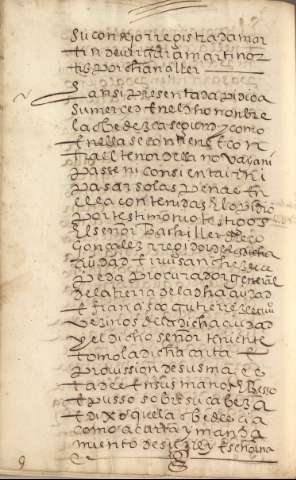 su consejo rregistrada mar
tin de vergara martin or
tiz por chanciller
E ansi presentada pidio a
su merced E nel dho nonbre
la obedezca segun y como
En ella se contiene E con
tra el tenor della no vaya ni
passe ni consienta yr ni
pasar so las penas En
ella contenidas E lo pidio
por testimonio testigos
El señor bachiller diego
gonçalez rregidor de la dicha
çiudad E luis sanchez de ce
peda procurador general
de la tierra de la dha çiudad
E françisco gutierrez
vezinos de la dicha çiudad
y el dicho señor teniente
tomo la dicha carta E
provission de su mag
tad E en sus manos E la besso
E pusso sobre su cabeza
E dixo que la obedecia
como a carta y manda
miento de su rrey E señor na